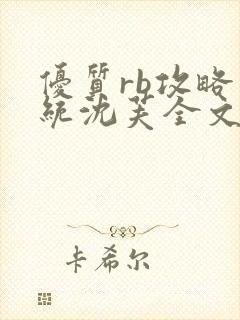 優質rb攻略
統沈芙全文
卡希尔